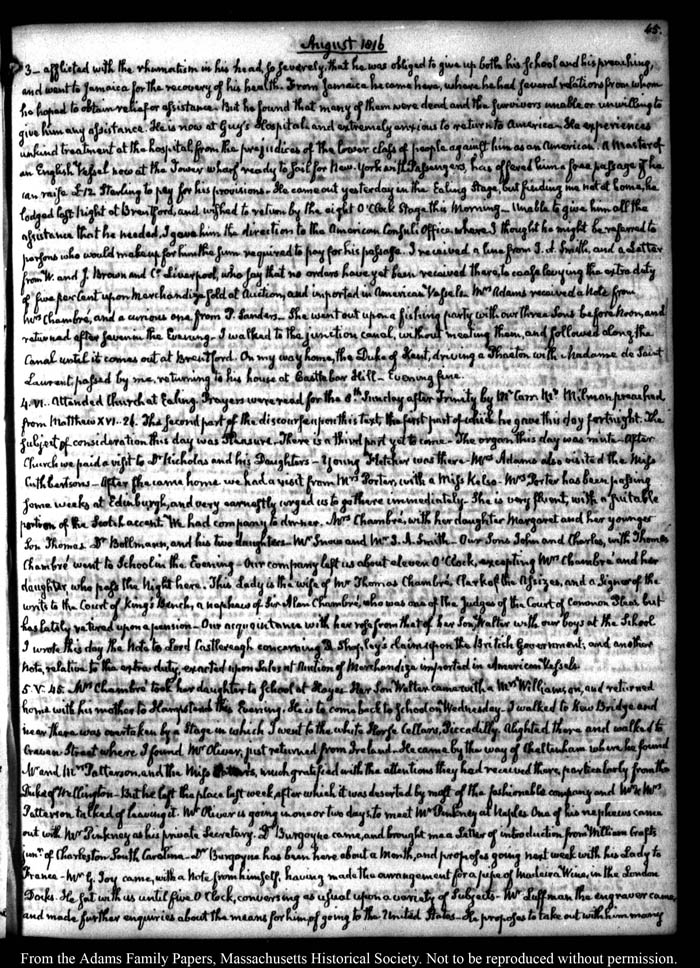 45.
August 1816
3— afflicted with the rhumatism in his head, so severely, that he was obliged to give up both his School and his preaching,
and went to Jamaica for the recovery of his health. From Jamaica he came here, where he had several relations from whom
he hoped to obtain relief or assistance. But he found that many of them were dead and the survivors unable or unwilling to
give him any assistance. He is now at Guy's Hospital, and extremely anxious to return to America— He experiences
unkind treatment at the hospital from the prejudices of the lower class of people against him as an American. A Master of
an English Vessel now at the Tower wharf ready to sail for New-York with Passengers, has offered him a free passage if he
can raise £12 Sterling to pay for his provisions— He came out yesterday in the Ealing Stage, but finding me not at home, he
lodged last Night at Brentford, and wished to return by the eight O'Clock Stage this Morning— Unable to give him all the
assistance that he needed, I gave him the direction to the American Consul's Office where I thought he might be referred to
persons who would make up for him the sum required to pay for his passage. I received a line from J. A. Smith, and a Letter
from W. and J. Brown and Co. Liverpool, who say that no orders have yet been received there, to cease levying the extra duty
of five per Cent upon Merchandize sold at Auction, and imported in American Vessels. Mrs Adams received a Note from
Mrs Chambré, and a curious one from J. Sanders— She went out upon a fishing party with our three Sons before Noon, and
returned after seven in the Evening. I walked to the junction canal, without meeting them, and followed along the
Canal until it comes out at Brentford. On my way home, the Duke of Kent, driving a Phaeton with Madame de Saint
Laurent passed by me, returning to his house at Castlebar Hill— Evening fine.
4. VI. Attended Church at Ealing. Prayers were read for the 8th Sunday after Trinity by Mr Carr. Mr Milman preached
from Matthew XVI. 26. The second part of the discourse upon this text, the first part of which he gave this day fortnight. The
subject of consideration this day was Pleasure— There is a third part yet to come— The organ this day was mute— After
Church we paid a visit to Dr Nicholas and his Daughters— Young Fletcher was there— Mrs Adams also visited the Miss
Cuthbertsons— After she came home we had a visit from Mrs Porter, with a Miss Kelso— Mrs Porter has been passing
some weeks at Edinburgh, and very earnestly urged us to go there immediately— She is very fluent, with a suitable
portion of the Scotch accent. We had company to dinner. Mrs Chambré, with her daughter Margaret and her younger
Son Thomas. Dr Bollmann, and his two daughters— Mr Snow and Mr J. A. Smith— Our Sons John and Charles, with Thomas
Chambré went to School in the Evening— Our company left us about eleven O'Clock, excepting Mrs Chambré and her
daughter, who pass the Night here. This Lady is the wife of Mr Thomas Chambré, Clerk of the Assizes, and a Signer of the
writs to the Court of King's Bench, a nephew of Sir Alan Chambré, who was one of the Judges of the Court of Common Pleas, but
has lately retired upon a pension— Our acquaintance with her rose from that of her Son, Walter with our boys at the School
I wrote this day the Note to Lord Castlereagh concerning Shepley's claim upon the British Government; and another
Note, relative to the extra duty, exacted upon Sales at Auction of Merchandize imported in American Vessels.
5. V:45. Mrs Chambré took her daughter to School at Hayes. Her Son Walter came with a Mrs Williamson, and returned
home with his mother to Hampstead this Evening. He is to come back to School on Wednesday. I walked to Kew Bridge and
near there was overtaken by a Stage in which I went to the white Horse Cellars, Piccadilly. Alighted there and walked to
Craven Street where I found Mr Oliver, just returned from Ireland— He came by the way of Cheltenham where he found
Mr and Mrs Patterson, and the Miss much gratified with the attentions they had received there, particularly from the
Duke of Wellington— But he left the place last week, after which it was deserted by most of the fashionable company and Mr & Mrs
Patterson talked of leaving it. Mr Oliver is going in one or two days, to meet Mr Pinkney at Naples. One of his nephews came
out with Mr Pinkney as his private Secretary. Dr Burgoyne came, and brought me a Letter of introduction from William Crafts
junr. of Charleston South Carolina— Dr Burgoyne has been here about a Month, and proposes going next week with his Lady to
France— Mr G. Joy came, with a Note from himself, having made the arrangement for a pipe of Madeira Wine, in the London
Docks. He sat with us until five O'Clock, conversing as usual upon a variety of Subjects— Mr Luffman the engraver came,
and made further enquiries about the means for him of going to the United States— He proposes to take out with him many
From the Adams Family Papers, Massachusetts Historical Society. Not to be reproduced without permission.